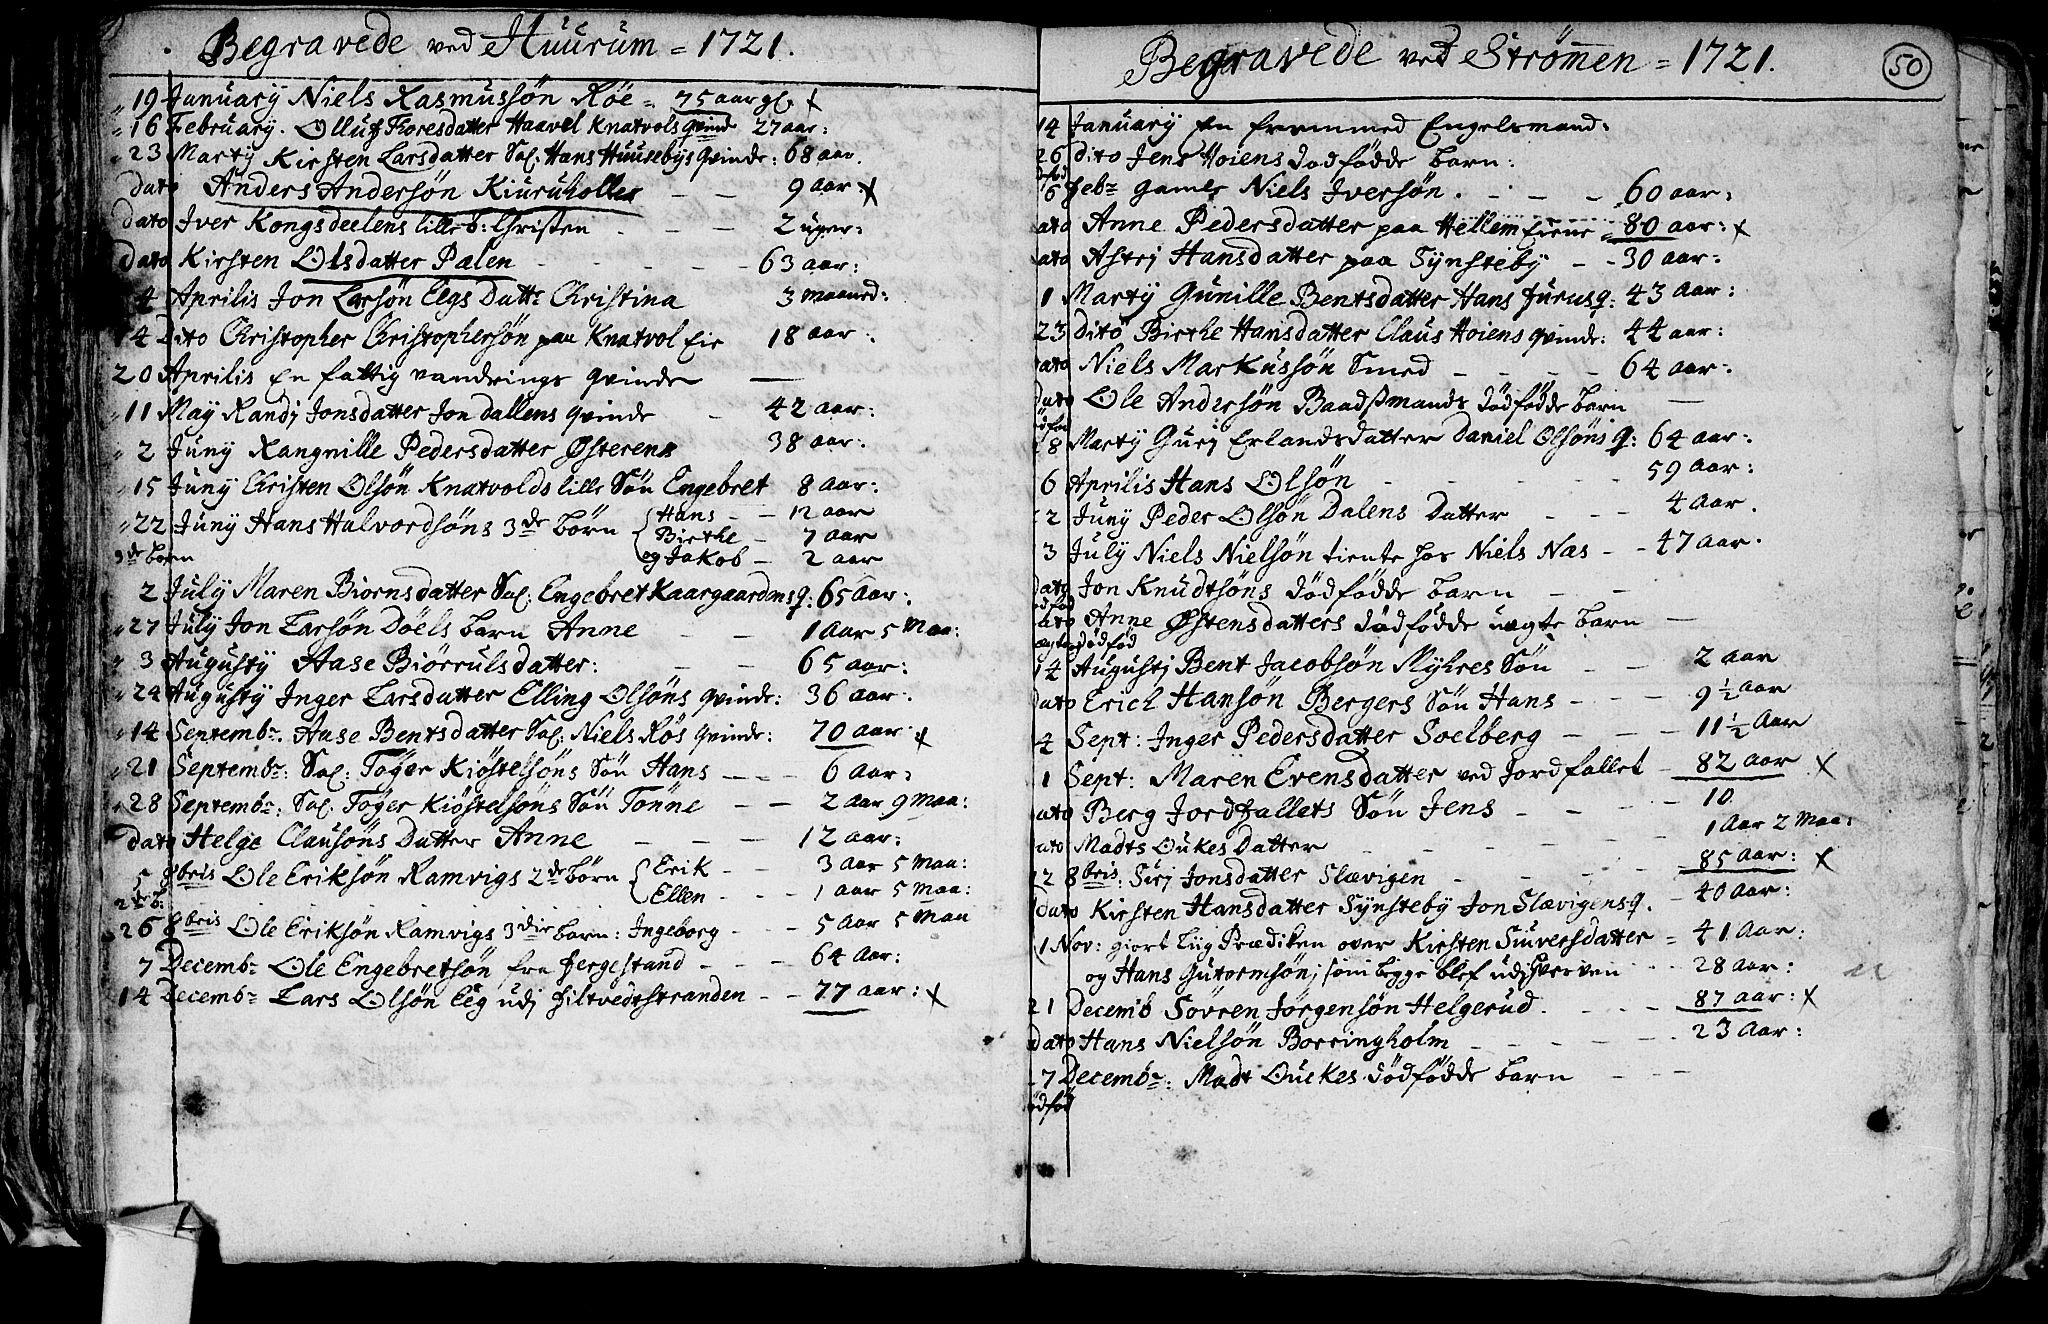 Begravede ved Huurum = 1721.
19 January Niels Rasmussön Röe = 75 aar gl. x
16 February. Olluf Thoresdatter Haavel Knatvols qvinde 27 aar:
23 Martÿ Kirsten Larsdatter Sal. Hans Huusebÿs qvinde: 68 aar.
dato Anders Andersön - - 9 aar x
dato Iver Kongsdeelens lille b: Christen - - - 2 uger:
dato Kirsten Olsdatter Palen - - - - - 63 aar:
4 Aprilis Jon Larsön Eegs Dattr Christina 3 maaned:
14 Dito Christopher Christophersön paa Knatvol Eie 18 aar:
20 Aprilis En fattig vandrings qvinde —
11 Maÿ Randj Jonsdatter Jon Dallens qvinde - 42 aar:
2 Junÿ Rangnille Pedersdatter Østerens 38 aar:
15 Junÿ Christen Olsön Knatvolds lille Sön Engebret 8 aar:
22 Junÿ Hans Halvordsöns 3de börn { Hans - - 12 aar
Birthe - 7 aar
3de börn og Jakob - 2 aar
2 Julÿ Maren Biornsdatter Sal. Engebret Kaargaardens q: 65 aar:
27 Julÿ Jon Larsön Döels barn Anne - - 1 aar 5 maa:
3 Augustÿ Aase Biörrulsdatter: - - 65 aar:
24 Augustÿ Inger Larsdatter Elling Olsöns qvinde: 36 aar:
14 Septembr. Aase Bentsdatter Sal: Niels Rös qvinde: 70 aar: x
21 Septembr: Sal: Töger Kiöstelsöns Sön Hans - - - 6 aar:
28 Septembr: Sal. Töger Kiöstelsöns Sön Tönne - - 2 aar 9 maa:
dato Helge Clausöns Datter Anne - - - 12 aar:
5 8bris Ole Eriksön Ramvigs 2de börn { Erik - - 3 aar 5 maa:
2de b: Ellen - - - 1 aar 5 maa:
26 8bris Ole Eriksön Ramvigs 3die barn: Ingeborg - - - 5 aar 5 maa
7 Decembr Ole Engebretsön fra Hergestrand - - - 64 aar:
14 Decembr Lars Olsön Eeg udj Filtvedtstranden - - 77 aar: x
Begravede ved Strömen = 1721.
50
14 January En fremmed Engelsmand:
26 dito Jens Hoiens dodfödde barn:
6 Febr gamle Niels Iversön. - - - 60 aar:
ato Anne Pedersdatter paa Hellem Eiene = 80 aar: x
ato Astrj Hansdatter paa Sÿnstebÿ - - 30 aar:
1 Martÿ Gunille Bentsdatter Hans Furus q: 43 aar:
23 dito Birthe Hansdatter Claus Hoiens qvinde: 44 aar:
ato Niels Markussön Smed - - - - 64 aar:
dato Ole Andersön Baadßmands dödfödde barn —
8 Martÿ Gurj Erlandsdatter Daniel Olsöns q: 64 aar:
6 Aprilis Hans Olsön - - - - 59 aar:
2 Junÿ Peder Olsön Dalens Datter - - - 4 aar.
3 Julÿ Niels Nielsön tiente hos Niels Næs - - 47 aar.
dato Jon Knudtsöns dödfödde barn - -
ato Anne Østensdatters dödfödde uægte barn —
dödföd
14 Augustj Bent Jacobsön Mÿhres Sön - - 2 aar
dato Erich Hansön Bergers Sön Hans - - - 9 ½ aar
4 Sept: Inger Pedersdatter Soelberg - - - 11 ½ aar
1 Sept: Maren Evensdatter ved Jordfallet - 82 aar x
ato Berg Jordfallets Sön Jens - - - 10.
ato Madts Oukes Datter - - - - 1 aar 2 maa:
12 8bris: Sirj Jonsdatter Slævigen - - - - 85 aar: x
dato Kirsten Hansdatter Sÿnstebÿ Jon Slævigens q. - 40 aar:
1 Nov: giort Liig Prædiken over Kirsten Siuversdatter = 41 aar:
og Hans Gutormsön; som begge blef udj Hverven - - 28 aar:
21 Decemb Sövren Jörgensön Helgerud. - - - 87 aar: x
dato Hans Nielsön Borringholm - - - - - 23 aar:
27 Decembr: Madt Ouekes dödfödde barn - - -
ödföd